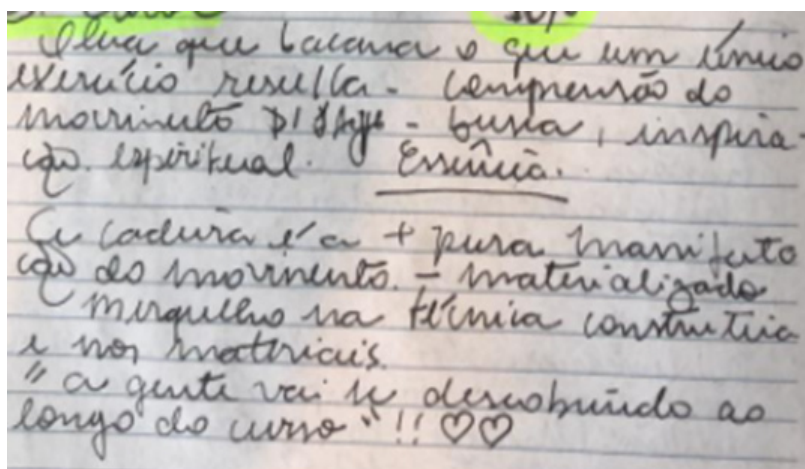 Olha que bacana o que um único
exercício resulta - compreensão do
movimento - busca, inspira-
ção. espiritual. Essência.
A cadeira é a + pura manifesta
ção do movimento. - materializado
mergulho na técnica construtiva
e nos materiais.
" a gente vai se descobrindo ao
longo do curso" !! ♡♡